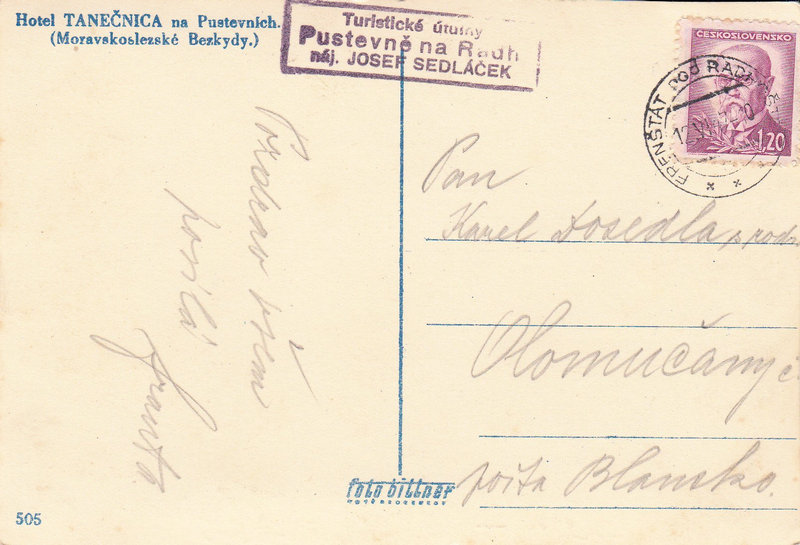 Hotel TANEČNICA na Pustevních.
(Moravskoslezské Bezkydy.)
Turistické útulny
Pustevně na Radh
náj. JOSEF SEDLÁČEK
ČESKOSLOVENSKO
1.20
FRENŠTÁT pod RADHOŠT
Pozdrav všem
posílá
Franta
Pan
Karel Dosedla s rod.
Olomučany
pošta Blansko.
foto bittner
505